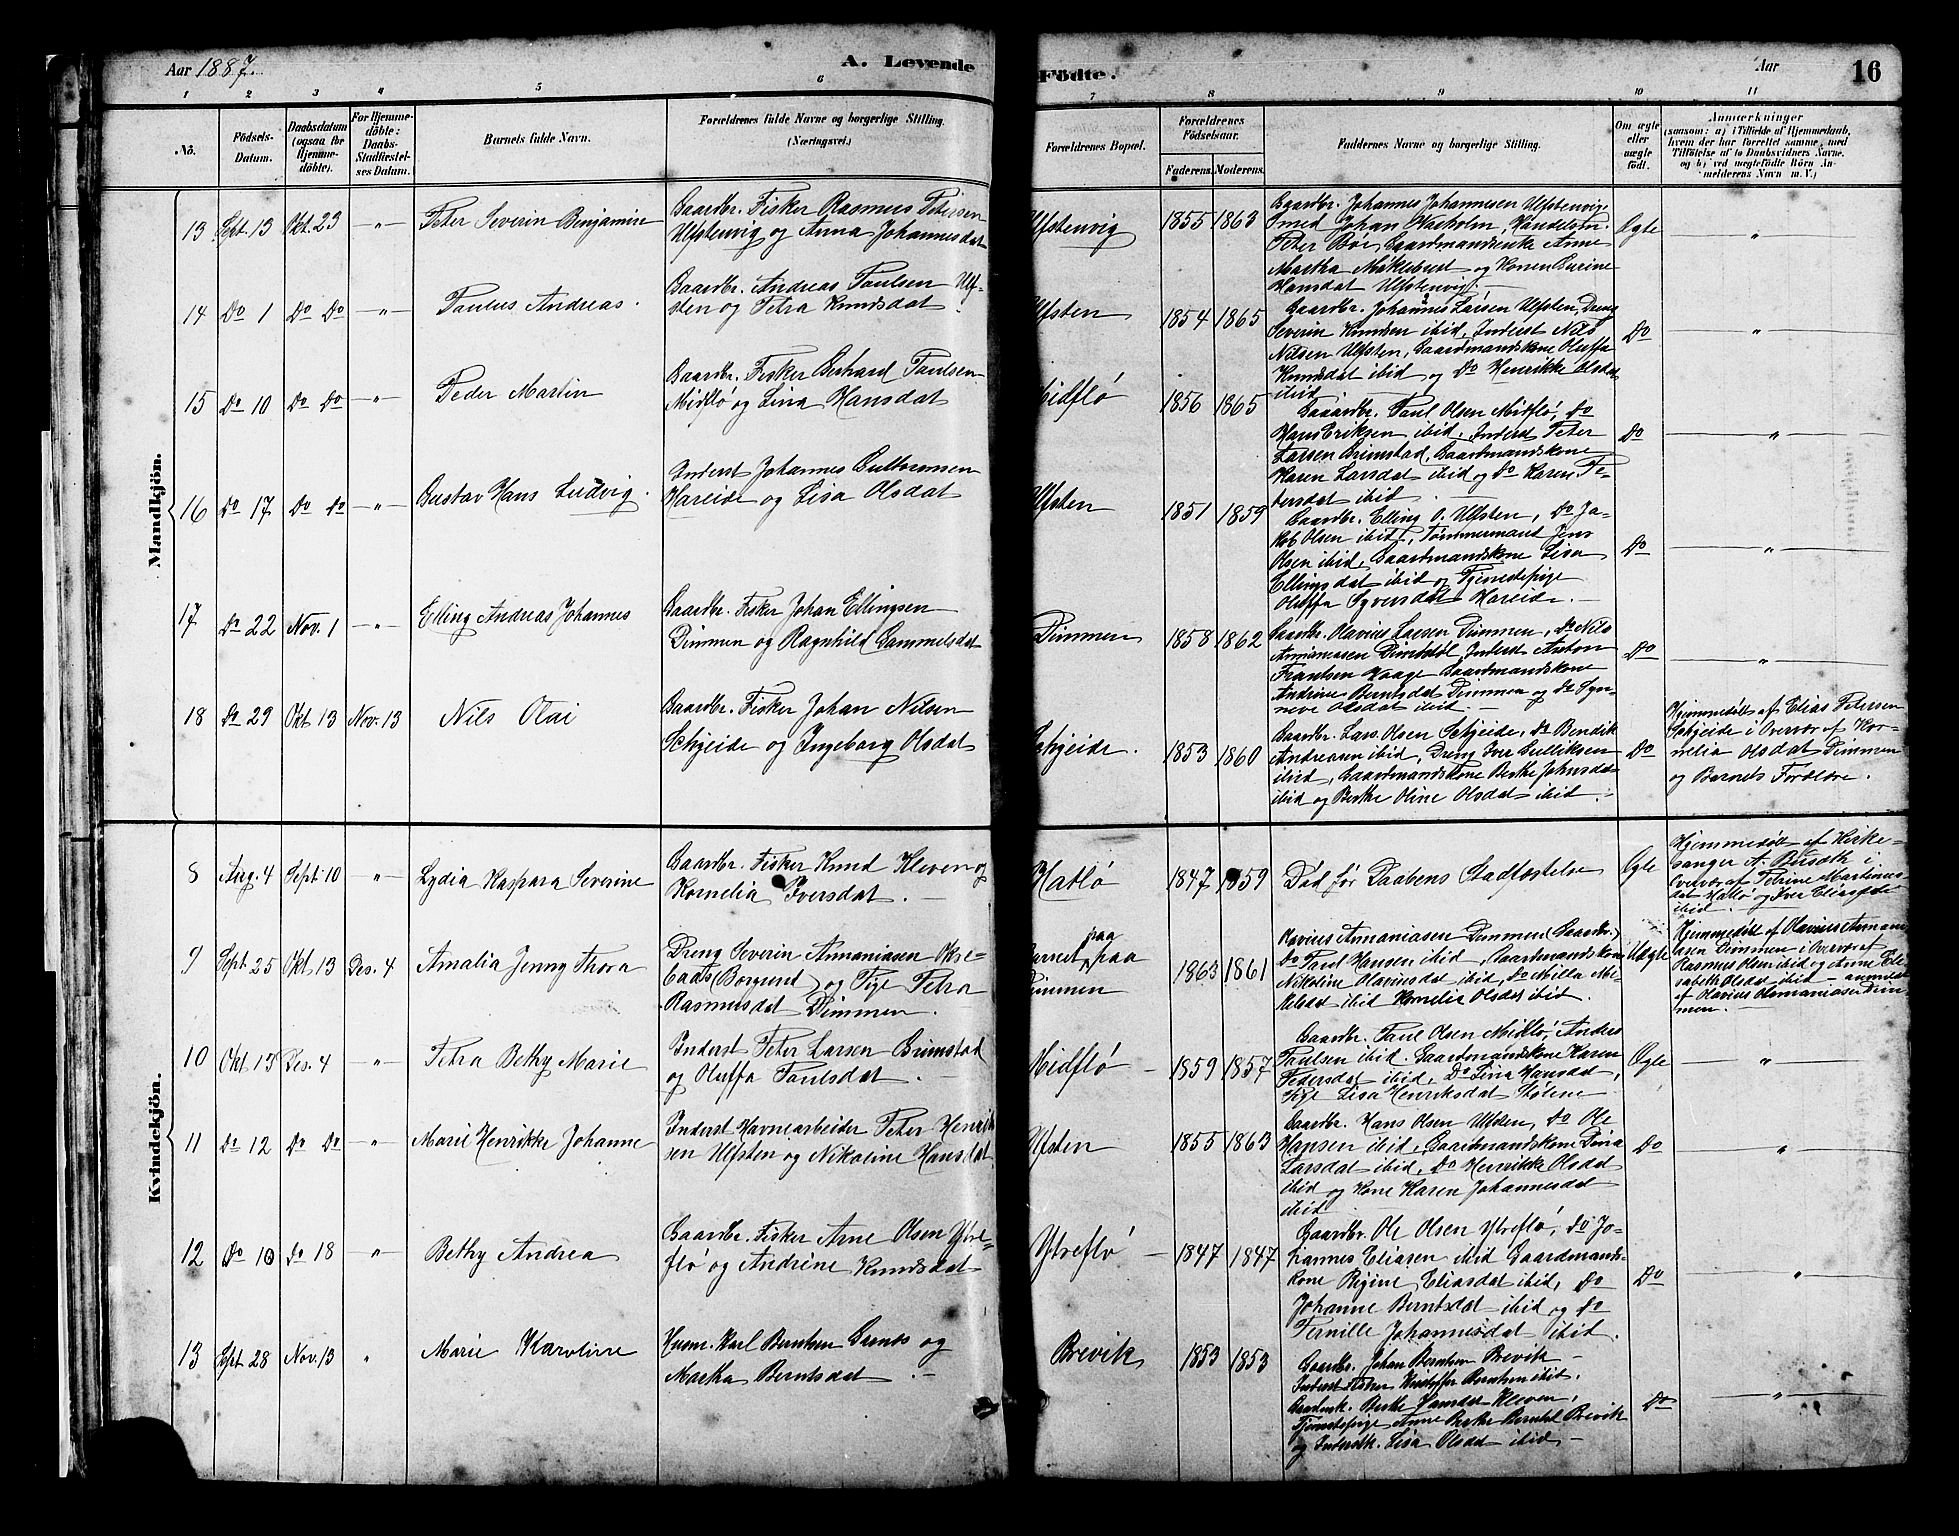 Aar 1887.
A. Levende
Födte.
Aar
16
1 2 3 4 5 6 7 8 9 10 11
No.
Födsels-
Datum.
Daabsdatum
(ogsaa for
Hjemme-
döbte).
For Hjemme-
döbte:
Daabs-
Stadfæstel-
ses Datum.
Barnets fulde Navn.
Forældrenes fulde Navne og borgerlige Stilling.
(Næringsvei.)
Forældrenes Bopæl.
Forældrenes
Födselsaar.
Faderens. Moderens.
Faddernes Navne og borgerlige Stilling.
Om ægte
eller
uægte
födt.
Anmærkninger
(saasom: a) i Tilfælde af Hjemmedaab,
hvem der har forrettet samme, med
Tilföielse af to Daabsvidners Navne,
og b) ved uægtefödte Börn An-
melderens Navn m. V.)
Mandkjön.
13 Sept. 13 Okt. 23 -"- Peter Severin Benjamin
Gaardbr. Fisker Rasmus Petersen
Ulfstenvig og Anna Johannesdat
Ulfstenvig 1855 1863
Gaardbr. Johannes Johannesen Ulfstenvig,
Smed Johan Waskolm, Handelsm.
Peter Bøe, Gaardmandsenke Anne
Martha Mŭklebust og Konen Burine
Hansdat Ulfstenvig.
Ægte "
14 Do 1 Do Do -"- Paulus Andreas.
Gaardbr. Andreas Paulsen Ulf-
sten og Petra Knudsdat.
Ulfsten 1854 1865
Gaardbr. Johannes Larsen Ulfsten, Dreng
Severin Knudsen ibid, Inderst Nils
Nilsen Ulfsten, Gaardmandskone Oluffa
Knudsdat ibid og Do Henrikke Olsdat
ibid.
Do "
15 Do 10 Do Do -"- Peder Martin
Gaardbr. Fisker Gerhard Paulsen
Midflø og Lina Hansdat
Midflø 1856 1865
Gaardbr. Paul Olsen Midflø, Do
Hans Eriksen ibid. Inderst Peter
Larsen Brimstad, Gaardmandskone
Karen Larsdat ibid og Do Karen Pe-
dersdat ibid.
Do "
16 Do 17 Do Do -"- Gustav Hans Ludvig.
Inderst Johannes Guttormsen
Hareide og Lisa Olsdat
Ulfsten 1851 1859
Gaardbr. Elling O. Ulfsten, Do Ja-
kob Olsen ibid, Tømmermand Jens
Olsen ibid, Gaardmandskone Lisa
Ellingsdat ibid og Tjenestepige
Oluffa Syversdat Hareide.
Do "
17 Do 22 Nov. 1 -"- Elling Andreas Johannes
Gaardbr. Fisker Johan Ellingsen
Dimmen og Ragnhild Gammelsdat
Dimmen 1858 1862
Gaardbr. Olavius Larsen Dimmen, Do Nils
Annaniassen Dimmen, Inderst Anton
Frantsen Haage Gaardmandskone
Andrine Berntsdat Dimmen og Do Syn-
neve Olsdat ibid.
Do "
18 Do 29 Okt. 13 Nov. 13 Nils Olai
Gaardbr. Fisker Johan Nilsen
Schjeide og Ingeborg Olsdat
Schjeide. 1853 1860
Gaardbr. Lars Olsen Schjeide, Do Bendik
Andreasen ibid, Dreng Iver Gulliksen
ibid, Gaardmandskone Berthe Johnsdat
ibid og Berthe Oline Olsdat ibid.
Do
Hjemmedøbt af Elias Petersen
Schjeide i Overvær af Kor-
nelia Olsdat Dimmen
og Barnets Forældre.
Kvindekjön.
8 Aug. 4 Sept. 10 " Lydia Kaspara Severine
Gaardbr. Fisker Knud Kleven og
Kornelia Iversdat.
Hatlø 1847 1859 Død før Daabens Stadfæstelse Ægte
Hjemmedøbt af Kirke-
sanger A. Bugeth i
Overvær af Petrine Martinus-
dat Hatlø og Iver Eliasen
ibid.
9 Sept. 25 Okt. 13 Des. 4 Amalia Jenny Thora
Dreng Severin Annaniasen Okse-
(Borgund) og Pige Petra
Rasmusdat Dimmen.
Barnet paa
paa
Dimmen 1863 1861
Olavius Annaniasen Dimmen (Gaardbr.)
Do Paul Hansen ibid, Gaardmandskone
Nikoline Olaviusdat ibid, Do Milla Mi-
kelsdat ibid Kornelia Olsdat ibid.
Uægte
Hjemmedøbt af Olavius Annani-
asen Dimmen i Overvær af
Rasmus Olsen ibid og Anne Eli-
sabeth Olsdat ibid anmeldt
af Olavius Annaniasen Dim-
men.
10 Okt. 15 Des. 4 " Petra Bethy Marie
Inderst Peter Larsen Brimstad
og Oluffa Paulsdat.
Midflø 1859 1857
Gaardbr. Paul Olsen Midflø, Anders
Paulsen ibid. Gaardmandskone Karen
Pedersdat ibid, Do Lina Hansdat,
Pige Lisa Henriksdat Stølene
Ægte "
11 Do 12 Do Do " Marie Henrikke Johanne
Inderst Havnearbeider Peter Henrik-
sen Ulfsten og Nikoline Hansdat
Ulfsten 1855 1863
Gaardbr. Hans Olsen Ulfsten, Do Ole
Hansen ibid, Gaardmandskone Dina
Larsdat ibid, Do Henrikke Olsdat
ibid og Kone Karen Johannesdat
ibid
Do "
12 Do 10 Do 18 " Bethy Andrea
Gaardbr. Fisker Arne Olsen Ytre-
flø og Andrine Knudsdat
Ytreflø 1847 1847
Gaardbr. Ole Olsen Ytreflø, Do Jo-
hannes Eliasen ibid Gaardmands-
kone Regine Eliasdat ibid, Do
Johanne Berntsdat ibid og Do
Pernille Johannesdat ibid.
Do "
13 Sept. 28 Nov. 13 " Marie Karoline
Husm. Karl Berntsen Grønes og
Martha Berntsdat.
Brevik 1853 1853
Gaardbr. Johan Berntsen Brevik
Inderst Fisker Kristoffer Berntsen ibid.
Gaardmk. Berthe Hansdat Kleven,
Tjenestepige Anne Berthe Berntsd Brevik
og Inderstk. Lisa Olsdat ibid
Do "